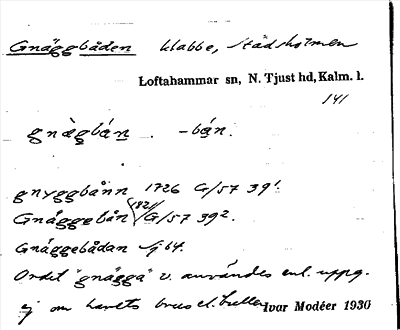 Gnäggbåden klabbe, Städsholmen
Loftahammar sn, N. Tjust hd, Kalm. l.
141
gnä̀gbán . -bán.
gnyggbånn 1726 G/57 39¹.
Gnäggebån 1821 G/57 39².
Gnäggebådan Sj 64.
Ordet "gnägga" v. användes enl. uppg.
ej om havets brus el.
Ivar Modéer 1930